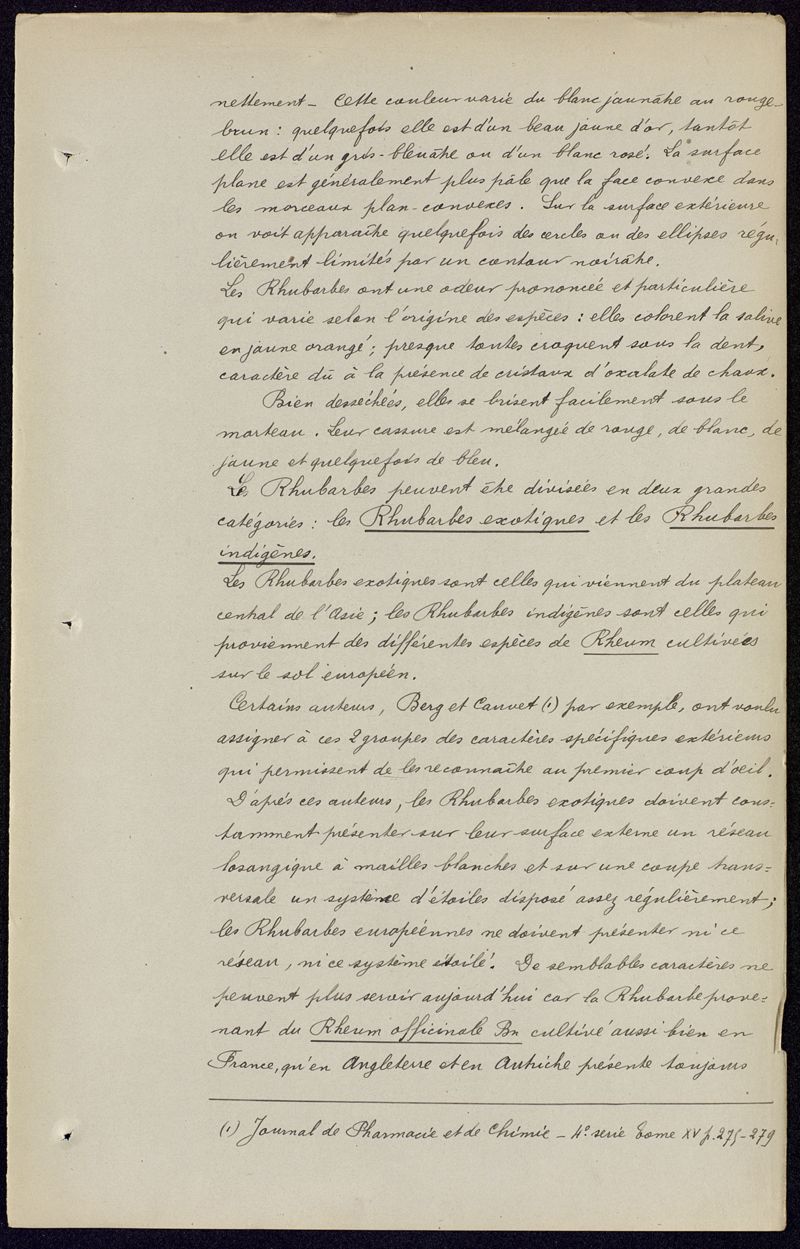 nettement - Cette couleur varie du blanc jaunâtre au rouge-
brun : quelquefois elle est d'un beau jaune d'or, tantôt
elle est d'un gris-bleuâtre ou d'un blanc rosé. La surface
plane est généralement plus pâle que la face convexe dans
les morceaux plan-convexes. Sur la surface extérieure
on voit apparaître quelquefois des cercles ou des ellipses régu-
lièrement limités par un contour noirâtre.
Les Rhubarbes ont une odeur prononcée et particulière
qui varie selon l'origine des espèces : elles colorent la salive
en jaune orangé ; presque toutes croquent sous la dent,
caractère dû à la présence de cristaux d'oxalate de chaux.
Bien desséchées, elles se brisent facilement sous le
marteau. Leur cassure est mélangée de rouge, de blanc, de
jaune et quelquefois de bleu.
Les Rhubarbes peuvent être divisées en deux grandes
catégories : les Rhubarbes exotiques et les Rhubarbes
indigènes.
Les Rhubarbes exotiques sont celles qui viennent du plateau
central de l'Asie ; les Rhubarbes indigènes sont celles qui
proviennent des différentes espèces de Rheum cultivées
sur le sol européen.
Certains auteurs, Berg et Cauvet (1) par exemple, ont voulu
assigner à ces 2 groupes des caractères spécifiques extérieurs
qui permissent de les reconnaître au premier coup d'oeil.
D'après ces auteurs, les Rhubarbes exotiques doivent cons=
tamment présenter sur leur surface externe un réseau
losangique à mailles blanches et sur une coupe trans=
versale un système d'étoiles disposé assez régulièrement ;
les Rhubarbes européennes ne doivent présenter ni ce
réseau, ni ce système étoilé. De semblables caractères ne
peuvent plus servir aujourd'hui car la Rhubarbe prove=
nant du Rheum officinale Bn cultivé aussi bien en
France, qu'en Angleterre et en Autriche présente toujours
(1) Journal de Pharmacie et de Chimie - 4e serie Tome XV p. 275-279